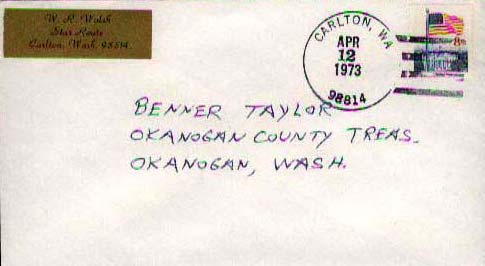 W. R. Walsh
Star Route
Carlton, Wash. 98814
CARLTON, WA
APR
12
1973
98814
8c
BENNER TAYLOR
OKANOGAN COUNTY TREAS.
OKANOGAN, WASH.